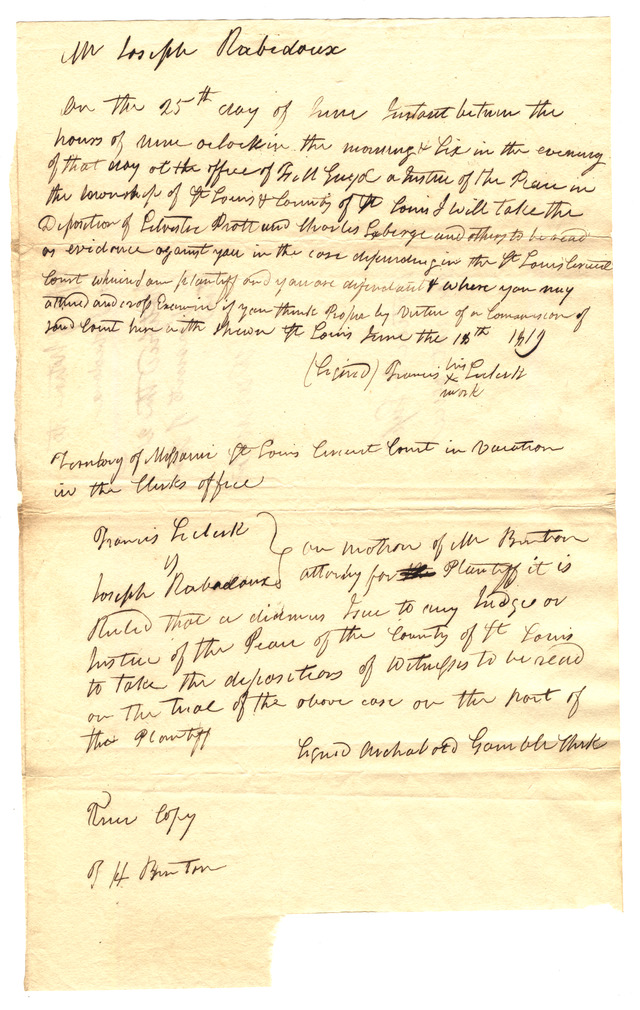 Mr Joseph Rabidoux
On the 25th day of June Instant betwen the
hours of nine oclock in the morning & Six in the evening
of that day at the office of F M Guyol a Justice of the Peace in
the township of St Louis & County of St Louis I will take the
Deposition of Silvestre Pratt and Charles Leberge and others to be read
as evidence against you in the case depending in the St Louis Circuit
Court wherin I am plantiff and you are defendant & where you may
attend and cross Examine if you think Proper by Virtue of a Commission of
said Court here with shewn St Louis June the 18th 1819
(Signed) Francis his x mark Leclerk
Territory of Missouri St Louis Circuit Court in Vacation
in the Clerks office
Francis Leclerk
vs
Joseph Rabadoux
on motion of Mr Benton
attorney for Plantiff it is
Ruled that a didimus Issue to any Judge or
Justice of the Peace of the County of St Louis
to take the depositions of Witnesses to be read
on the trial of the above case on the part of
the Plantiff
Signed Archabald Gamble Clerk
True Copy
T H Benton